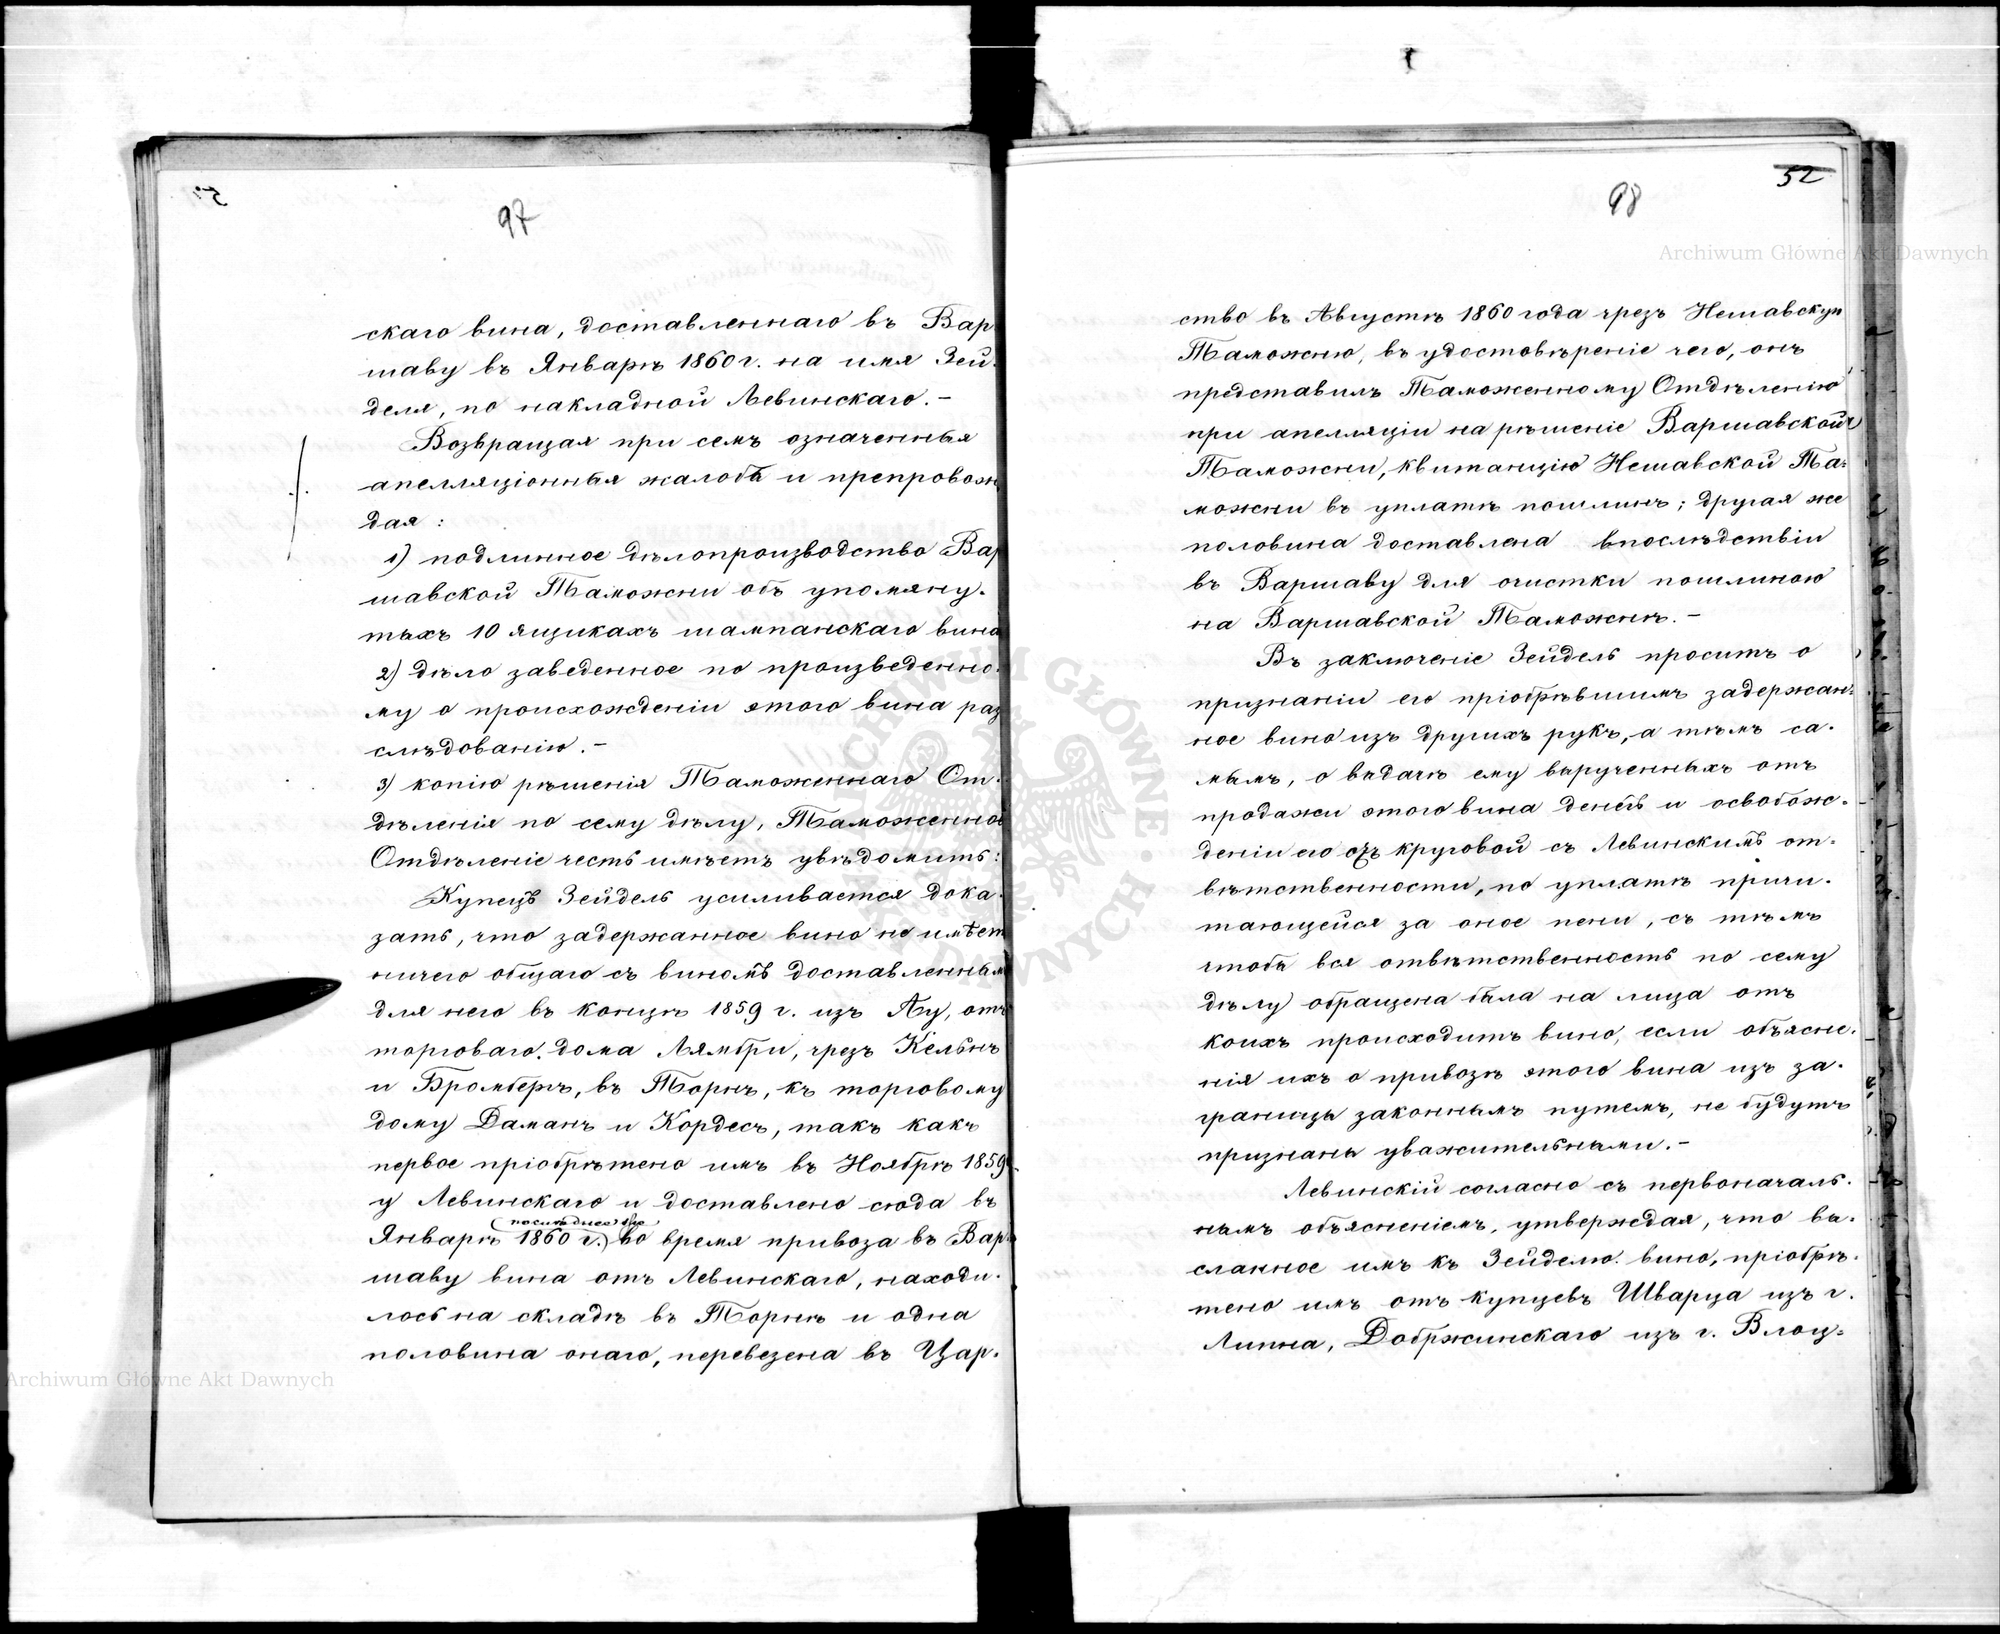 97
скаго вина, доставленнаго въ Вар
шаву въ Январѣ 1860 г. на имя Зей-
деля, по накладной Левинскаго.–
Возвращая при семъ означенныя
апелляціонныя жалобы и препровож
дая:
1) подлинное дѣлопроизводство Вар
шавской Таможни объ упомяну-
тыхъ 10 ящикахъ шампанскаго вина
2) дѣло заведенное по произведенно-
му о происхожденіи этого вина раз
слѣдованію.–
3) копію рѣшенія Таможеннаго От-
дѣленія по сему дѣлу, Таможенное
Отдѣленіе честь имѣетъ увѣдомить:
Купецъ Зейдель усиливается дока-
зать, что задержанное вино не имѣет
ничего общаго съ виномъ доставленным
для него въ концѣ 1859 г. изъ Ау, отъ
торговаго дома Лямбри, чрезъ Кельнъ
и Бромбергъ, въ Торнъ, къ торговому
дому Даманъ и Кордесъ, такъ какъ
первое пріобрѣтено имъ въ Ноябрѣ 1859
у Левинскаго и доставлено сюда въ
(последнее же
Январѣ 1860 г.) во время привоза въ Вар
шаву вина отъ Левинскаго, находи-
лось на складѣ въ Торнѣ и одна
половина онаго, перевезена въ Цар-
52
98
ство въ Августѣ 1860 года чрезъ Нешавскую
Таможню, въ удостовѣреніе чего, онъ
представилъ Таможенному Отдѣленію
при апелляціи на рѣшеніе Варшавской
Таможни, квитанцію Нешавской Та-
можни въ уплатѣ пошлинъ; другая же
половина доставлена впослѣдствіи
въ Варшаву для очистки пошлиною
на Варшавской Таможнѣ.–
Въ заключеніе Зейдель проситъ о
признаніи его пріобрѣвшимъ задержан-
ное вино изъ другихъ рукъ, а тѣмъ са-
мымъ, о выдачѣ ему вырученныхъ отъ
продажи этого вина денегъ и освобож-
деніи его отъ круговой съ Левинскимъ от-
вѣтственности, по уплатѣ причи-
тающейся за оное пени, съ тѣмъ
чтобы вся отвѣтственность по сему
дѣлу обращена была на лица отъ
коихъ происходитъ вино, если объясне-
нія ихъ о привозѣ этого вина изъ за-
границы законнымъ путемъ, не будутъ
признаны уважительными.–
Левинскій согласно съ первоначаль-
нымъ объясненіемъ, утверждая, что вы-
сланное имъ къ Зейделю вино, пріобрѣ-
тено имъ отъ купцевъ Шварца изъ г.
Липна, Добржинскаго изъ г. Влоц-
Archiwum Główne Akt Dawnych
Archiwum Główne Akt Dawnych